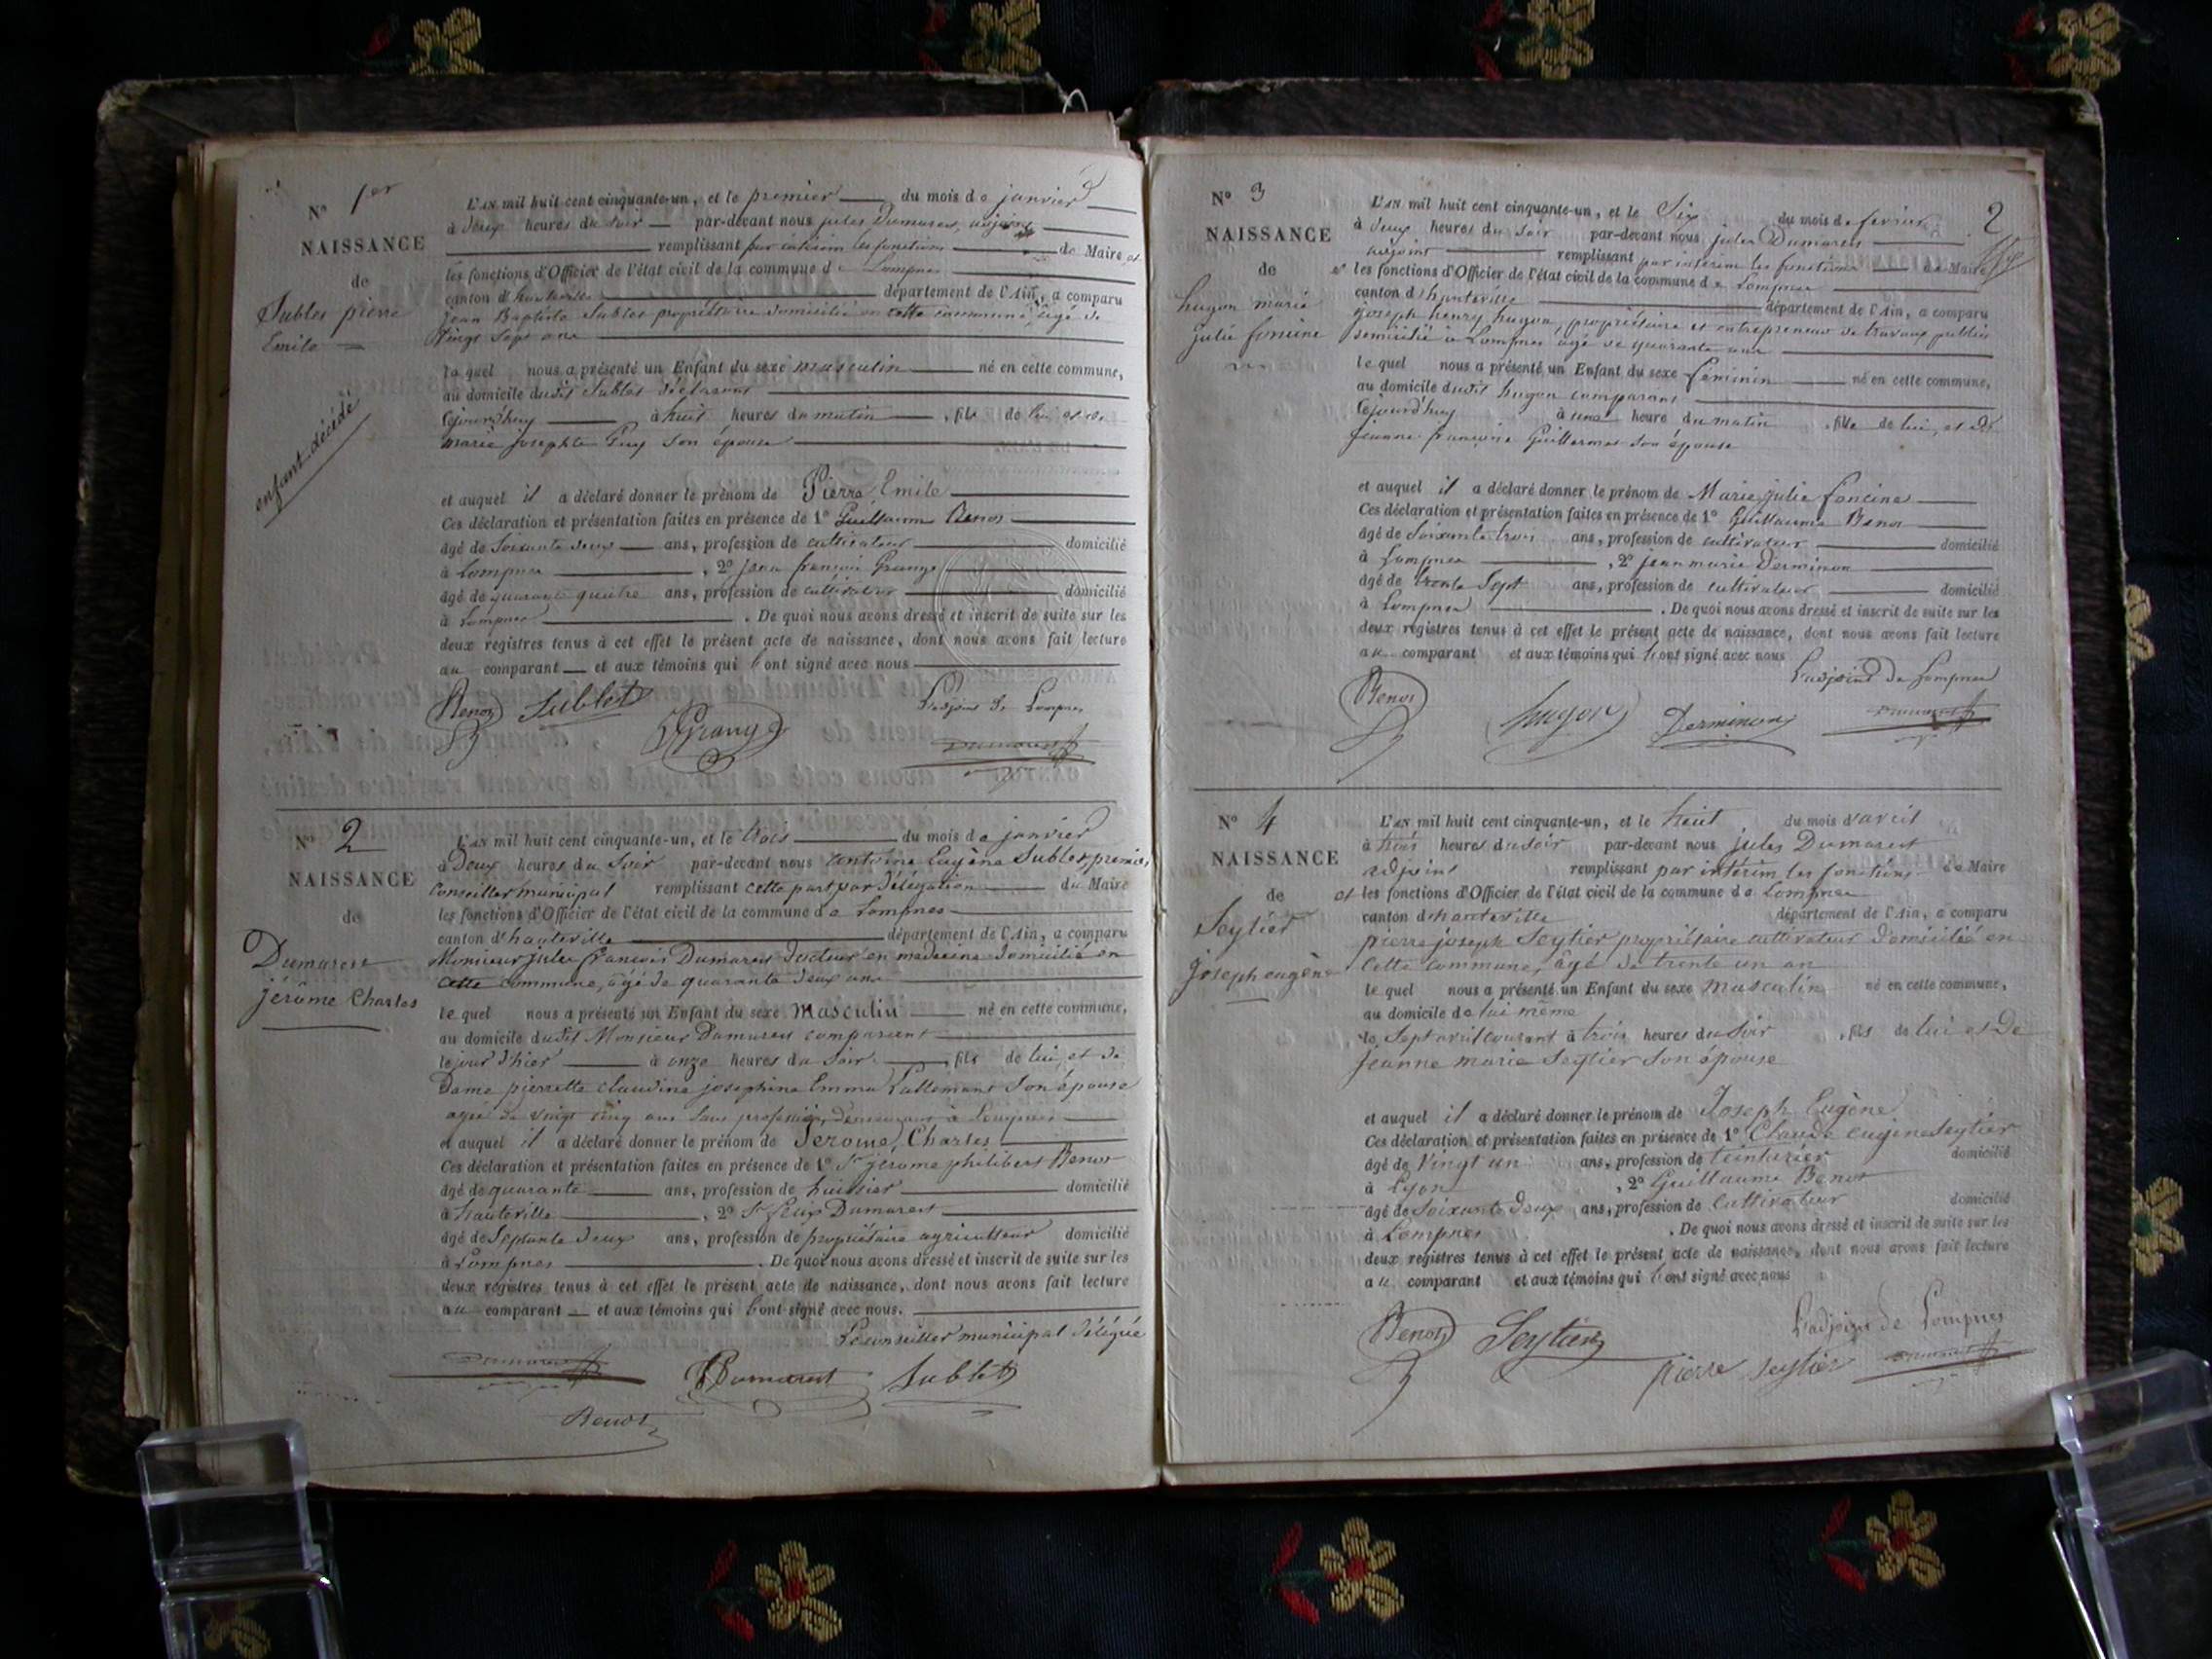 N° 1er
NAISSANCE
de
Sublet pierre
Emile
enfant décédé
L'AN mil huit cent cinquante-un, et le premier du mois de janvier
à deux heures du soir par-devant nous jules Dumarest, adjoint
remplissant par intérim les fonctions de Maire et
les fonctions d'Officier de l'état civil de la commune de Lompnes
canton d'hauteville département de l'Ain, a comparu
Jean Baptiste Sublet propriétaire domicilié en cette commune, âgé de
Vingt Sept ans
le quel nous a présenté un Enfant du sexe masculin né en cette commune,
au domicile dudit Sublet déclarant
Cejourd'huy à huit heures du matin, fils de lui et de
marie josephte Guy son épouse
et auquel il a déclaré donner le prénom de Pierre Emile
Ces déclaration et présentation faites en présence de 1° Guillaume Benoz
âgé de Soixante deux ans, profession de cultivateur domicilié
à Lompnes, 2° jean françois Grange
âgé de quarante quatre ans, profession de cultivateur domicilié
à Lompnes. De quoi nous avons dressé et inscrit de suite sur les
deux registres tenus à cet effet le présent acte de naissance, dont nous avons fait lecture
au comparant et aux témoins qui l'ont signé avec nous
L'adjoint de Lompnes
Benoz Sublet Grange
Dumarest
N° 2
NAISSANCE
de
Dumarest
jérôme Charles
L'AN mil huit cent cinquante-un, et le trois du mois de janvier
à Deux heures du Soir par-devant nous antoine Eugène Sublet, premier
Conseiller municipal remplissant cette part par délégation du Maire
les fonctions d'Officier de l'état civil de la commune de Lompnes
canton d'hauteville département de l'Ain, a comparu
Monsieur jules françois Dumarest docteur en medecine domicilié en
cette commune, âgé de quarante deux ans
le quel nous a présenté un Enfant du sexe Masculin né en cette commune,
au domicile dudit Monsieur Dumarest comparant
le jour d'hier à onze heures du Soir, fils de lui et de
Dame pierrette claudine josephine Emma Lallemant Son épouse
agée de vingt cinq ans sans profession, demeurant à Lompnes
et auquel il a déclaré donner le prénom de Jerome, Charles
Ces déclaration et présentation faites en présence de 1° Sr jérome philibert Benoz
âgé de quarante ans, profession de huissier domicilié
à hauteville, 2° Sr Dumarest
âgé de Septante deux ans, profession de propriétaire agriculteur domicilié
à Lompnes. De quoi nous avons dressé et inscrit de suite sur les
deux registres tenus à cet effet le présent acte de naissance, dont nous avons fait lecture
au comparant et aux témoins qui l'ont signé avec nous.
Le conseiller municipal délégué
Dumarest Dumarest Sublet
Benoz
2
N° 3
NAISSANCE
de
hugon marie
julie foncine
L'AN mil huit cent cinquante-un, et le Six du mois de fevrier
à deux heures du soir par-devant nous jules Dumarest
adjoint remplissant par intérim les fonctions de Maire
et les fonctions d'Officier de l'état civil de la commune de Lompnes
canton d'hauteville département de l'Ain, a comparu
joseph henry hugon, propriétaire et entrepreneur de travaux publics
domicilié à Lompnes âgé de quarante ans
le quel nous a présenté un Enfant du sexe féminin né en cette commune,
au domicile dudit hugon comparant
Cejourd'huy à une heure du matin, fille de lui, et de
jeanne françoise Guillermet son épouse
et auquel il a déclaré donner le prénom de Marie julie foncine
Ces déclaration et présentation faites en présence de 1° Guillaume Benoz
âgé de Soixante trois ans, profession de cultivateur domicilié
à Lompnes, 2° jean marie Derminon
âgé de trente Sept ans, profession de cultivateur domicilié
à Lompnes. De quoi nous avons dressé et inscrit de suite sur les
deux registres tenus à cet effet le présent acte de naissance, dont nous avons fait lecture
au comparant et aux témoins qui l'ont signé avec nous
L'adjoint de Lompnes
Benoz hugon Derminon Dumarest
N° 4
NAISSANCE
de
Seytier
joseph eugène
L'AN mil huit cent cinquante-un, et le huit du mois d'avril
à trois heures du soir par-devant nous jules Dumarest
adjoint remplissant par intérim les fonctions de Maire
et les fonctions d'Officier de l'état civil de la commune de Lompnes
canton d'hauteville département de l'Ain, a comparu
pierre joseph Seytier propriétaire cultivateur domicilié en
Cette commune, âgé de trente un an
le quel nous a présenté un Enfant du sexe Masculin né en cette commune,
au domicile de lui même
le Sept avril courant à trois heures du Soir, fils de lui et de
Jeanne marie Seytier Son épouse
et auquel il a déclaré donner le prénom de Joseph Eugène
Ces déclaration et présentation faites en présence de 1° Claude eugène Seytier
âgé de Vingt un ans, profession de teinturier domicilié
à Lyon, 2° Guillaume Benoz
âgé de Soixante deux ans, profession de Cultivateur domicilié
à Lompnes. De quoi nous avons dressé et inscrit de suite sur les
deux registres tenus à cet effet le présent acte de naissance, dont nous avons fait lecture
au comparant et aux témoins qui l'ont signé avec nous
L'adjoint de Lompnes
Benoz Seytier pierre seytier Dumarest